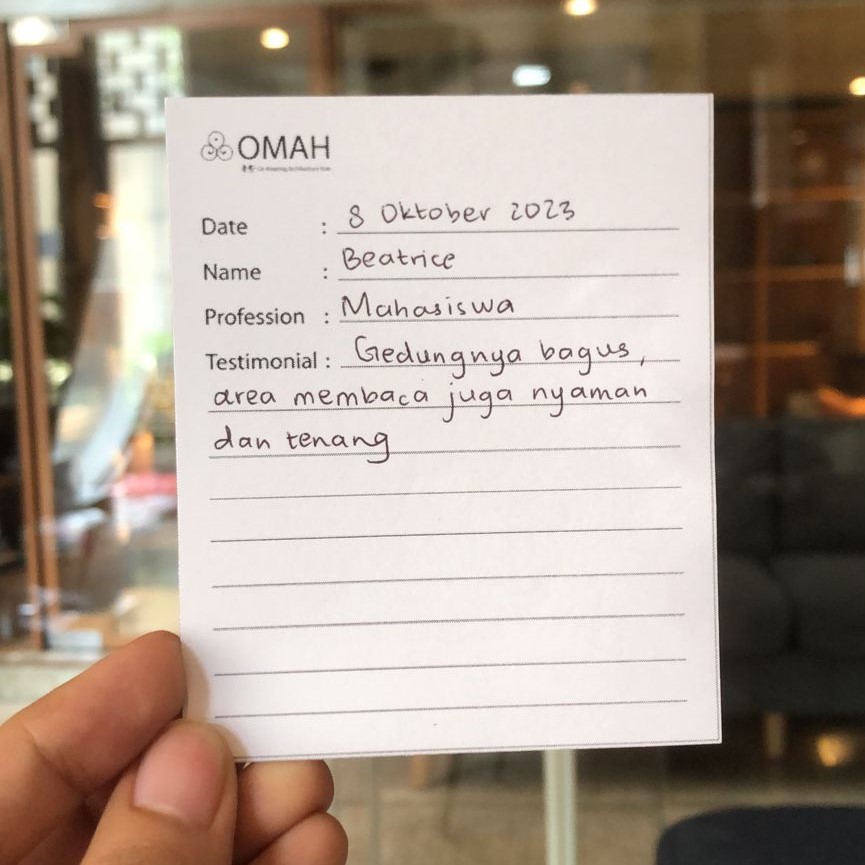 OMAH
Date : 8 Oktober 2023
Name : Beatrice
Profession : Mahasiswa
Testimonial : Gedungnya bagus,
area membaca juga nyaman
dan tenang